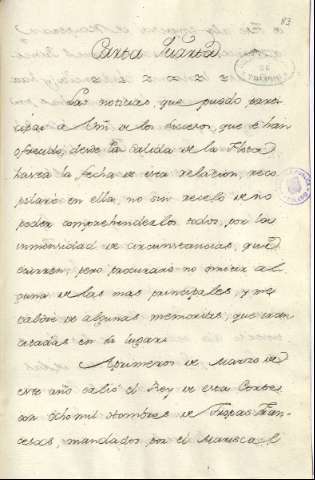 83
Carta Quarta
Las noticias, que puedo parti-
cipar a Vm de los sucesos, que se han
ofrecido, desde la salida de la Flota
hasta la fecha de esta relacion, reco-
pilaré en ella, no sin rezelo de no
poder comprehenderlos todos, por la
inmensidad de circunstancias, que
ocurren; pero procuraré no omitir al-
guna de las mas principales, y me
valdré de algunas memorias, que iran
citadas en su lugar.
A primeros de Marzo de
este año salió el Rey de esta Corte
con ocho mil hombres de Tropas Fran-
cesas, mandados por el Mariscal